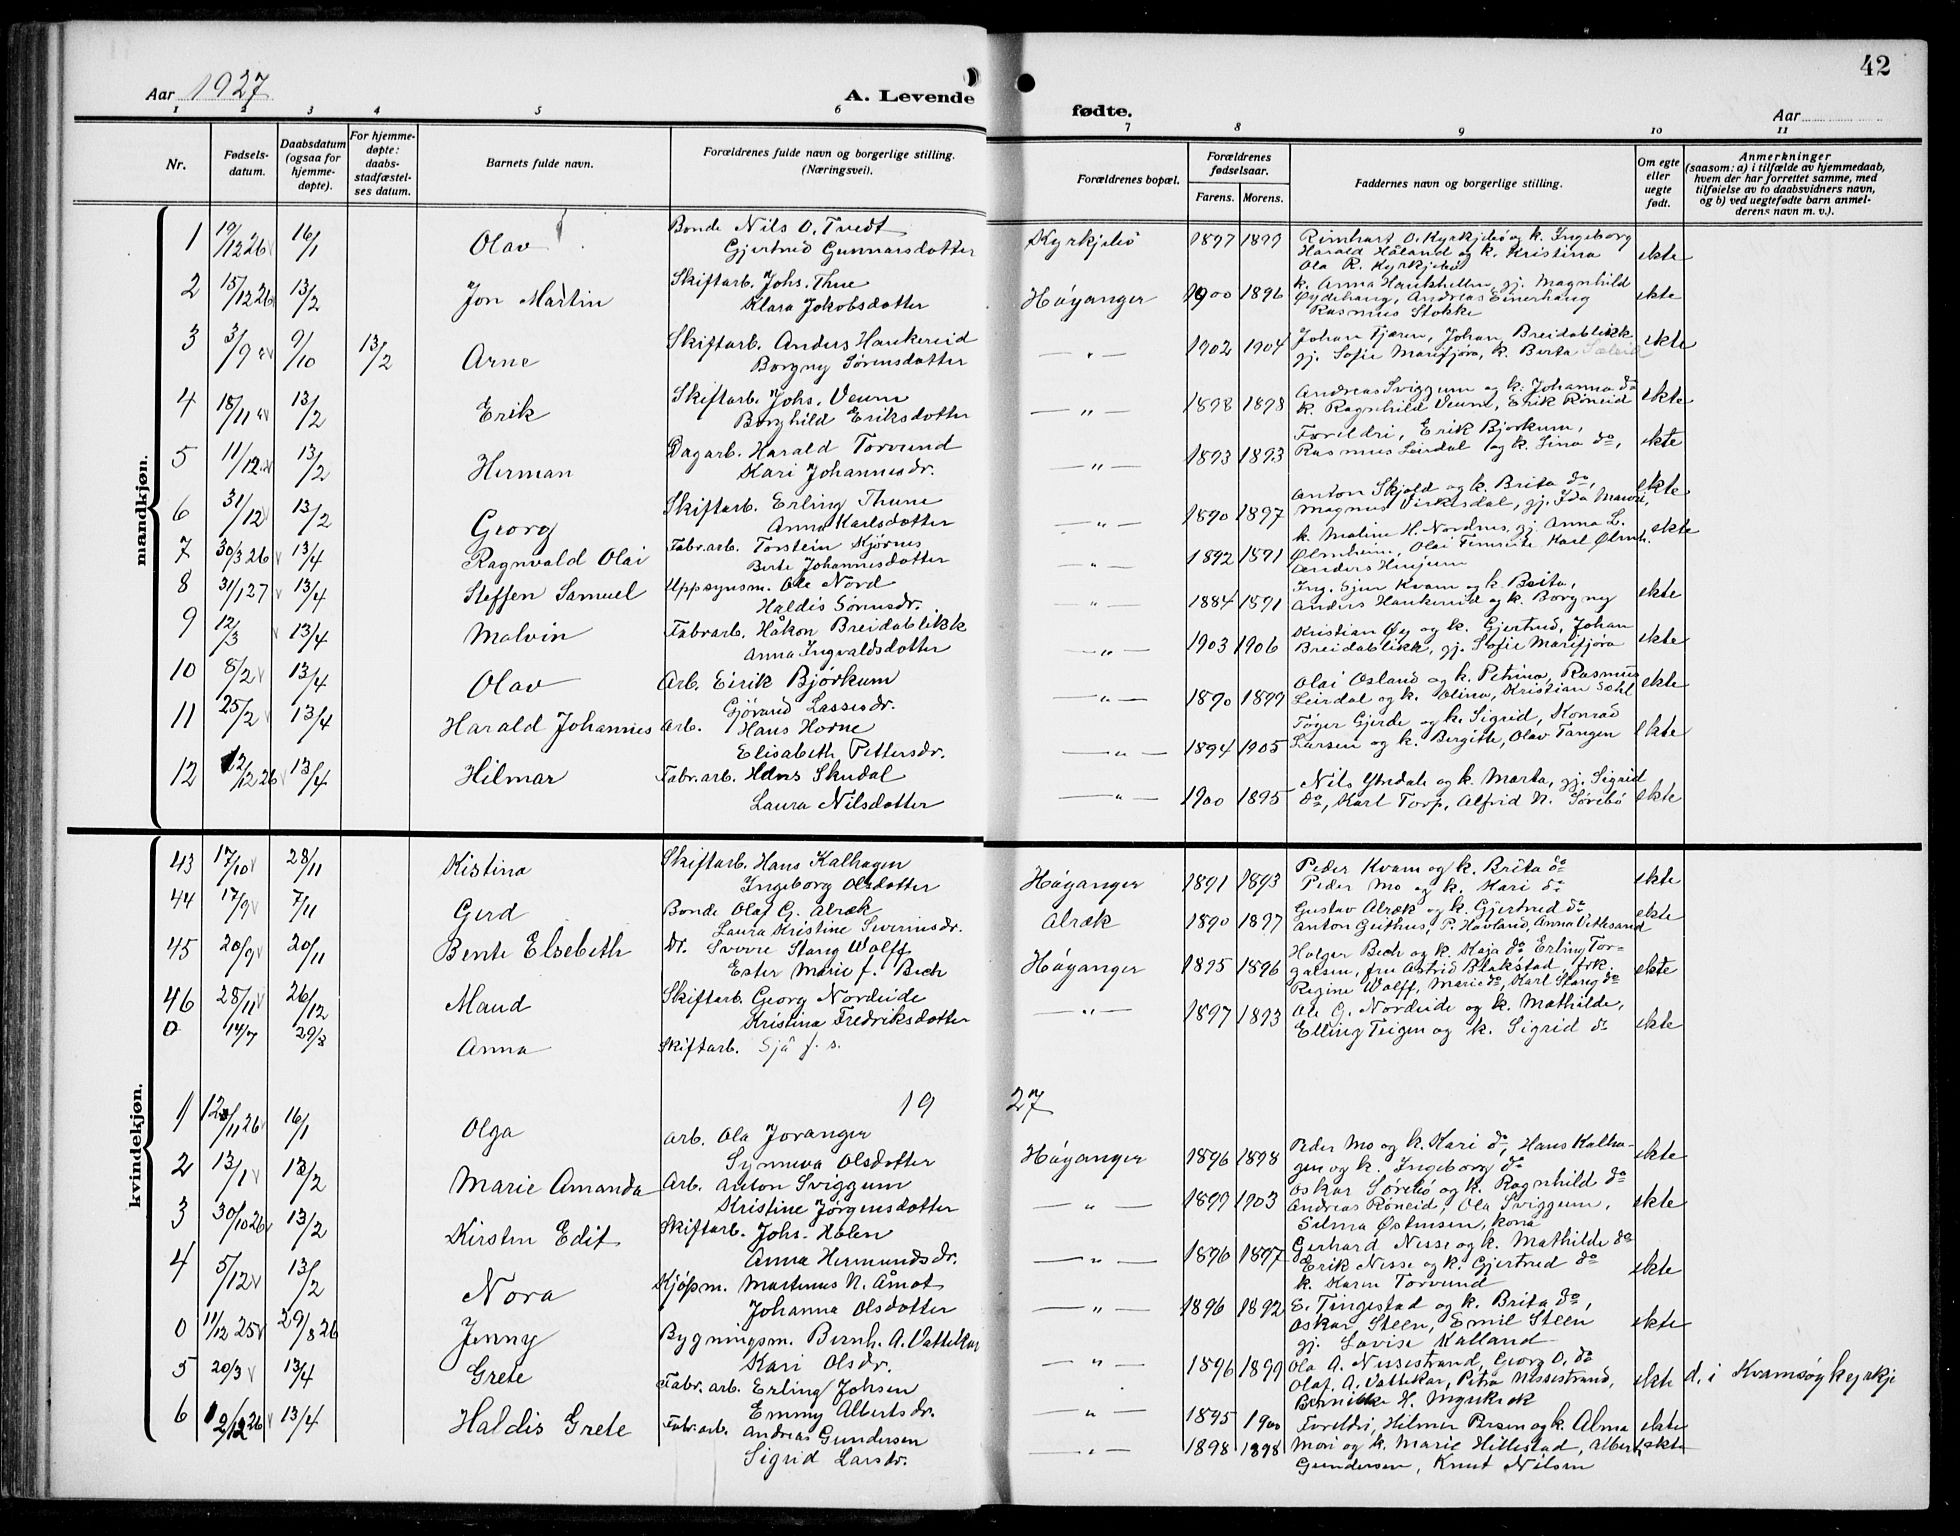 42
Aar 1927
A. Levende fødte.
Aar
1 2 3 4 5 6 7 8 9 10 11
Nr.
Fødsels-datum.
Daabsdatum (ogsaa for hjemme-døpte).
For hjemme-døpte: daabs-stadfæstel-ses datum.
Barnets fulde navn.
Forældrenes fulde navn og borgerlige stilling. (Næringsvei).
Forældrenes bopæl.
Forældrenes fødselsaar.
Farens. Morens.
Faddernes navn og borgerlige stilling.
Om egte eller uegte født.
Anmerkninger (saasom: a) i tilfælde av hjemmedaab, hvem der har forrettet samme, med tilføielse av to daabsvidners navn, og b) ved uegtefødte barn anmel-derens navn m. v.).
mandkjøn.
1 19/12 26 16/1 Olav Bonde Nils O. Tvedt Kyrkjebö 1897 1899 Rimhart O. Kyrkjebö og k. Ingeborg ekte
Gjertrud Gunnarsdotter Harald Håland og k. Kristina
Ola R. Kyrkjebö
2 15/12 26 13/2 Jon Martin Skiftarb. Johs. Thue Höyanger 1900 1896 k. Anna Haukshellen, gj. Magnhild ekte
Klara Jakobsdotter Öydehaug, Andreas Einerhaug
Rasmus Stokke
3 3/9 26 9/10 13/2 Arne Skiftarb. Anders Haukereid — " — 1902 1904 Johan Fjæren, Johan Breidablikk ekte
Borgny Sörensdotter gj. Sofie Marifjöra, k. Berta
4 18/11 26 13/2 Erik Skiftarb. Johs. Veum — " — 1898 1898 Andreas Sviggum og k. Johanna do ekte
Borghild Eriksdotter k. Ragnhild Veum, Erik Röneid
5 11/12 26 13/2 Herman Dagarb. Harald Torvund — " — 1893 1893 Foreldri, Erik Bjorkum, ekte
Kari Johannesdr. Rasmus Leirdal og k. Sina do,
6 31/12 13/2 Georg Skiftarb. Erling Thune — " — 1890 1897 Anton Skjold og k. Brita do, ekte
Anna Karlsdotter Magnus Virkesdal, gj. Ida
7 30/3 26 13/4 Ragnvald Olai Fabr.arb. Torstein Kjörnes — " — 1892 1891 k. Maline H. Nordnes, gj. Anna L. ekte
Berte Johannesdotter Ølmheim, Olai Karl Ølmh.
8 31/1 27 13/4 Steffen Samuel Uppsynsm. Ole Nord — " — 1884 1891 Ing. Kvam og k. Brita, ekte
Haldis Sörensdr. Anders Haukereid og k. Borgny
9 12/3 13/4 Malvin Fabrarb. Håkon Breidablikk — " — 1903 1906 Kristian Øy og k. Gjertrud, Johan ekte
Anna Ingvaldsdotter Breidablikk, gj. Sofie Marifjöra
10 8/2 13/4 Olav Arb. Eirik Björkum — " — 1890 1899 Olai Osland og k. Petrina, Rasmus ekte
Gjörand Lassesdr. Leirdal og k. Olina, Kristian Dahl
11 25/2 13/4 Harald Johannes Arb. Hans Horne — " — 1894 1905 Töger Gjerde og k. Sigrid, Konrad ekte
Elisabeth Pettersdr. Larsen og k. Bergitte, Olav Tangen
12 12/12 26 13/4 Hilmar Fabr.arb. Hans Skudal — " — 1900 1895 Nils Ytredale og k. Marta, gj. Sigrid ekte
Laura Nilsdotter do, Karl Torp, Alfrid N. Sörebö
kvindekjøn.
43 17/10 28/11 Kistina Skiftarb. Hans Kalhagen Höyanger 1891 1893 Peder Kvam og k. Brita do ekte
Ingeborg Olsdotter Peder Mo og k. Kari do
44 17/9 7/11 Gerd Bonde Olaf G. Alræk Alræk 1890 1897 Gustav Alræk og k. Gjertrud do ekte
Laura Kristine Severinsdr. Anton Geithus, P. Hovland, Anna Vettesand
45 20/9 20/11 Bente Elsebeth Dr. Sverre Stang Wolff Höyanger 1895 1896 Holger Bech og k. Kaja do Erling Tor- ekte
Ester Marie f. Bech galsen, fru Astrid Blakstad, frk.
Regine Wolff, Marie do, Karl Stang do
46 28/11 26/12 Maud Skiftarb. Georg Nordeide — " — 1897 1893 Ole G. Nordeide og k. Mathilde, ekte
Kristina Fredriksdotter Elling Teigen og k. Sigrid do
0 14/7 29/8 Anna Skiftarb. Sjå f. s.
1927
1 12/11 26 16/1 Olga Arb. Ola Joranger Höyanger 1896 1898 Peder Mo og k. Kari do, Hans Kalha- ekte
Synneva Olsdotter gen og k. Ingeborg do
2 13/1 13/2 Marie Amanda Arb. Anton Sviggum — " — 1899 1903 Oskar Sörebö og k. Ragnhild do ekte
Kristine Jörgensdotter Andreas Röneid, Ola Sviggum,
Selma Östensen, kona
3 30/10 26 13/2 Kirsten Edit Skiftarb. Johs. Holen — " — 1896 1897 Gerhard Nesse og k. Mathilde do ekte
Anna Hermundsdr. Erik Nesse og k. Gjertrud do
k. Karen Torvund
4 5/12 13/2 Nora Kjöpm. Martenus N. Åmot — " — 1896 1892 E. Tingestad og k. Brita do, ekte
Johanna Olsdotter Oskar Steen, Emil Steen
gj. Lovise Kalland
0 11/12 25 29/8 26 Jenny Bygningsm. Bernh. A. Vattekar — " — 1896 1899 Ola A. Nessestrand, Georg O. do ekte d. i Kvamsöy kyrkje
Kari Olsdr. Olaf A. Vattekar, Petra Nessestrand,
H.
5 20/3 13/4 Grete Fabr.arb. Erling Johsen — " — 1895 1900 Foreldri, Hilmer og k. Alma ekte
Emmy Albertsdr.
6 12/12 26 13/4 Haldis Grete Fabr.arb. Andreas Gundersen — " — 1898 1898 Mori og k. Marie Hillestad, Albert ekte
Sigrid Larsdr. Gundersen, Knut Nilsen